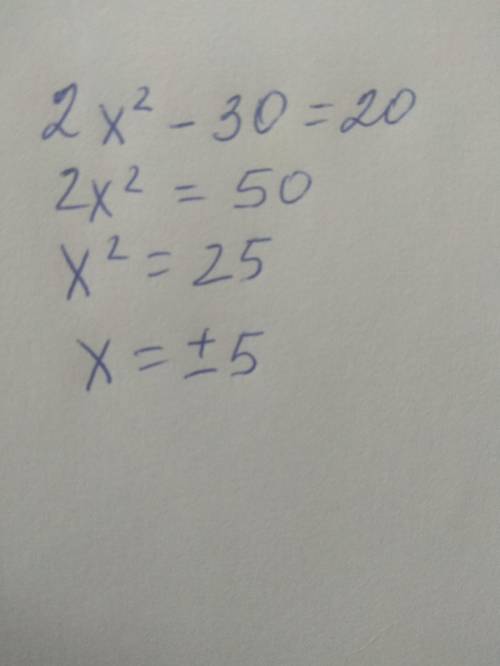 2x² - 30 = 20
2x² = 50
x² = 25
x = ±5